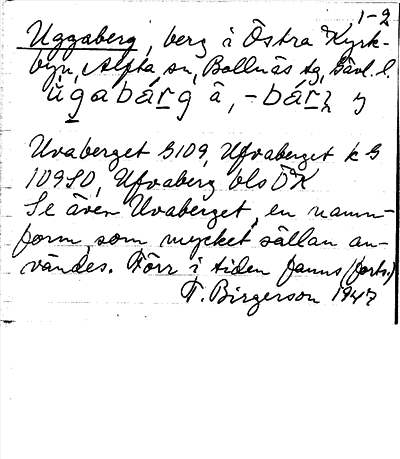 1-2
Uggaberg, berg i Östra Kyrk-
byn, Alfta sn, Bollnäs tg, Gävl. l.
ùgabárg â, -bárn y
Uvaberget G109, Ufvaberget k G
109SO, Ufvaberg bls ÖK
Se även Uvaberget, en namn-
form, som mycket sällan an-
vändes. Förr i tiden fanns (forts.)
T. Birgerson 1947